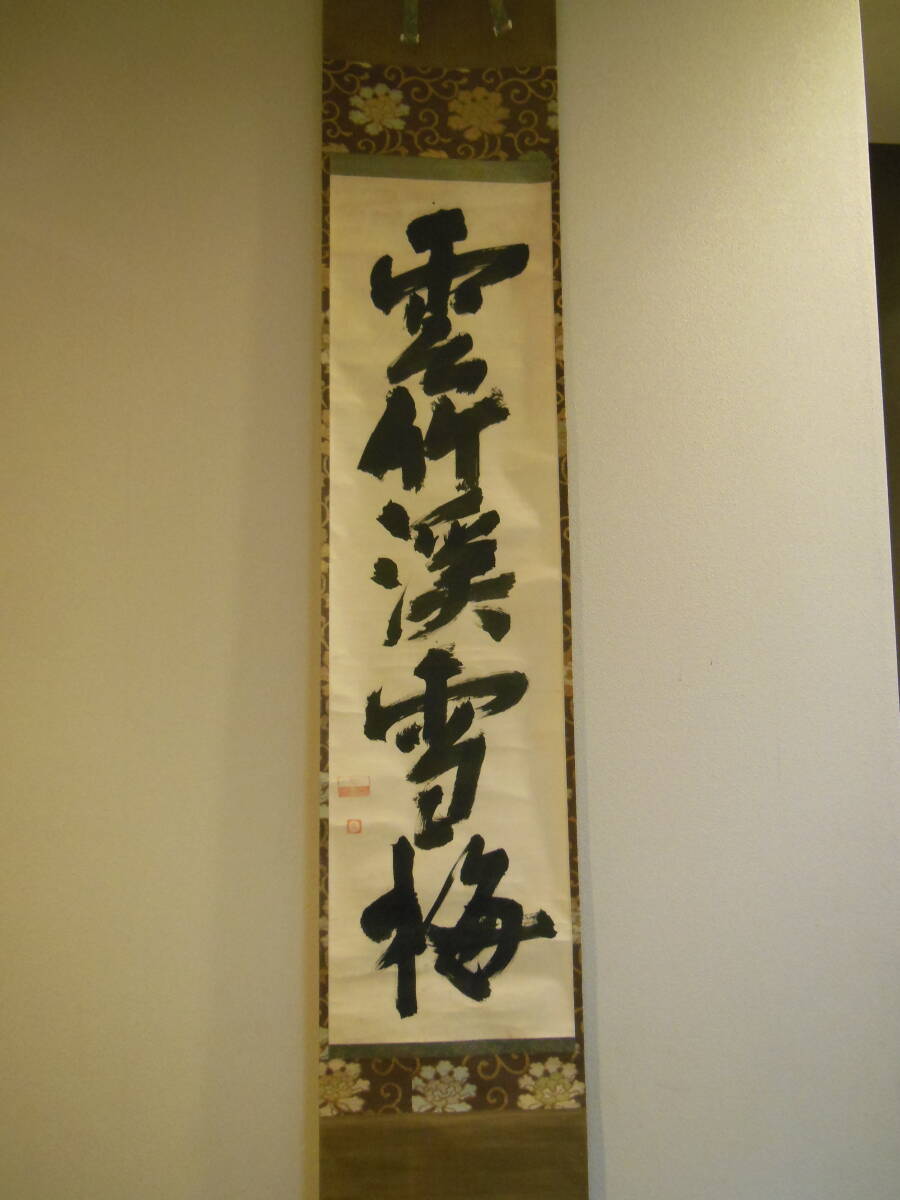 雲竹渓雪梅